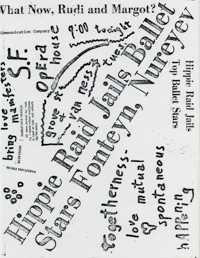 What Now, Rudi and Margot?
Communication Company
9:00 tonight
Opera
house
S.F.
bring love
manifesters
grove st
tues
Hippie Raid Jails Ballet
Stars Fonteyn, Nureyev
Hippie Raid Jails
Top Ballet Stars
togetherness-
love mutual
spontaneous
happening